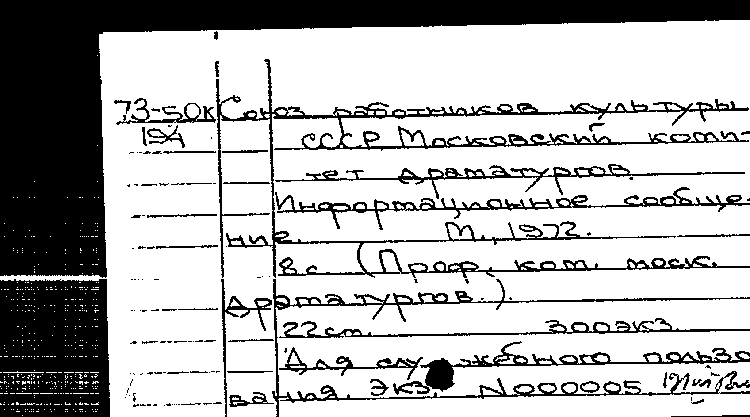 73-50к Союз работников культуры
СССР Московский коми-
тет драматургов.
Информационное сообще-
ние. М., 1972.
8 с (Проф. ком. моск.
драматургов.).
22 см. 300 экз.
Для служебного пользо
вания. Экз. N000005.